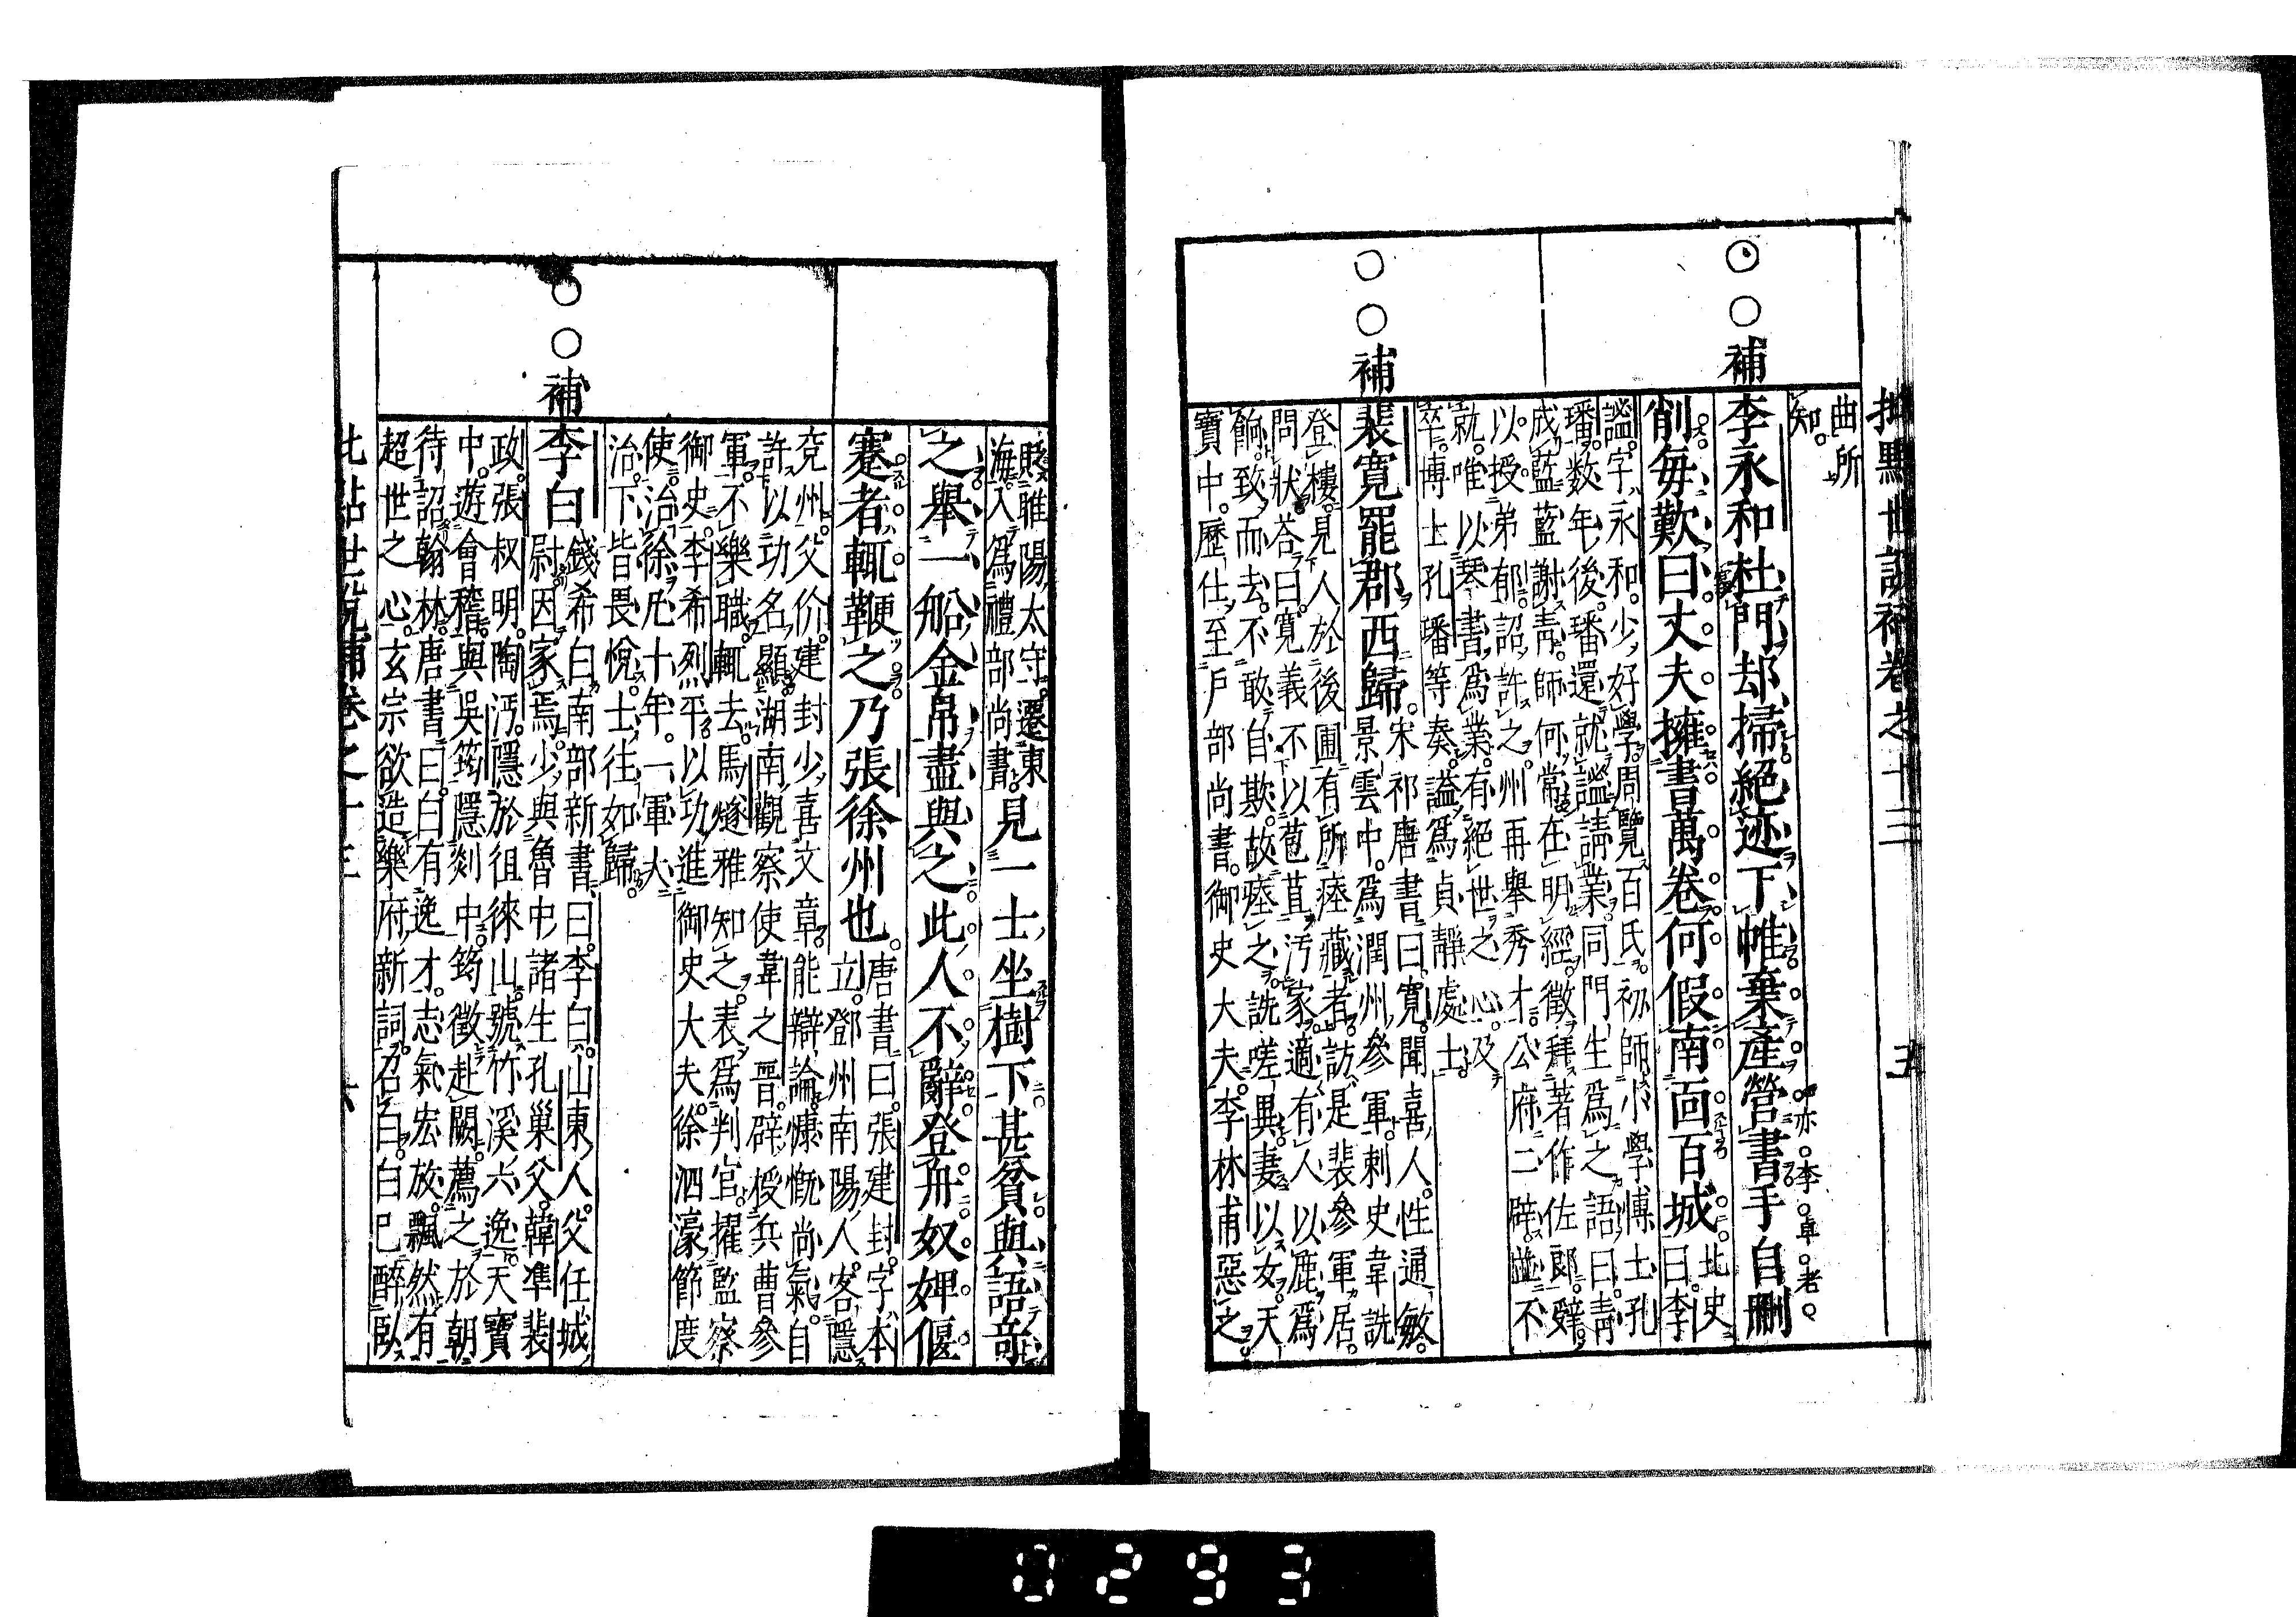 批點世說補卷之十三　五
曲所
知。
補李永和杜門却掃絕迹下帷棄產營書手自刪
亦。李。卓。老。
削每歎曰丈夫擁書萬卷何假南面百城
北史
曰。李
謐。字永和。少好學。周覽百氏。初師小學博士孔
璠。数年後。璠還就謐請業。同門生爲之語曰。青
成藍藍謝青。師何常。在明經。徵拜著作佐郎。辭。
以授弟郁。詔許之。州再舉秀才。公府二辟。並不
就。唯以琴書爲業。有絕世之心。及
卒。博士孔璠等奏。謚爲貞靜處士。
補裴寬罷郡西歸。
宋祁唐書曰。寬。聞喜人。性通敏。
景雲中。爲潤州參軍。刺史韋詵
登樓。見人於後圃有所瘞藏者。訪。是裴參軍居。
問狀。答曰。寬義不以苞苴汚家。適有人以鹿爲
餉。致而去。不敢自欺。故瘞之。詵嗟異。妻以女。天
寶中。歷仕至戶部尚書。御史大夫。李林甫惡之
貶睢陽太守。遷東
海。入爲禮部尚書。
見一士坐樹下甚貧與語奇
之舉一船金帛盡與之此人不辭登舟奴婢偃
蹇者輒鞭之乃張徐州也。
唐書曰。張建封。字本
立。鄧州南陽人。客隱
兗州。父价。建封少喜文章。能辯論。慷慨尚氣。自
許以功名顯。湖南觀察使韋之晋。辟授兵曹參
軍。不樂職。輒去。馬燧雅知之。表爲判官。擢監察
御史。李希烈平。以功進御史大夫。徐泗濠節度
使。治徐凡十年。一軍大
治。下皆畏悅。士往如歸。
補李白
錢希白南部新書曰。李白。山東人。父任城
尉。因家焉。少與魯中諸生孔巢父。韓準裴
政。張叔明。陶沔。隱於徂徠山。號竹溪六逸。天寶
中。遊會稽。與吳筠隱剡中。筠徵赴闕。薦之於朝
待詔翰林。唐書曰。白有逸才。志氣宏放。飄然有
超世之心。玄宗欲造樂府新詞。召白。白已醉臥
批點世說補卷之十三　六
0293